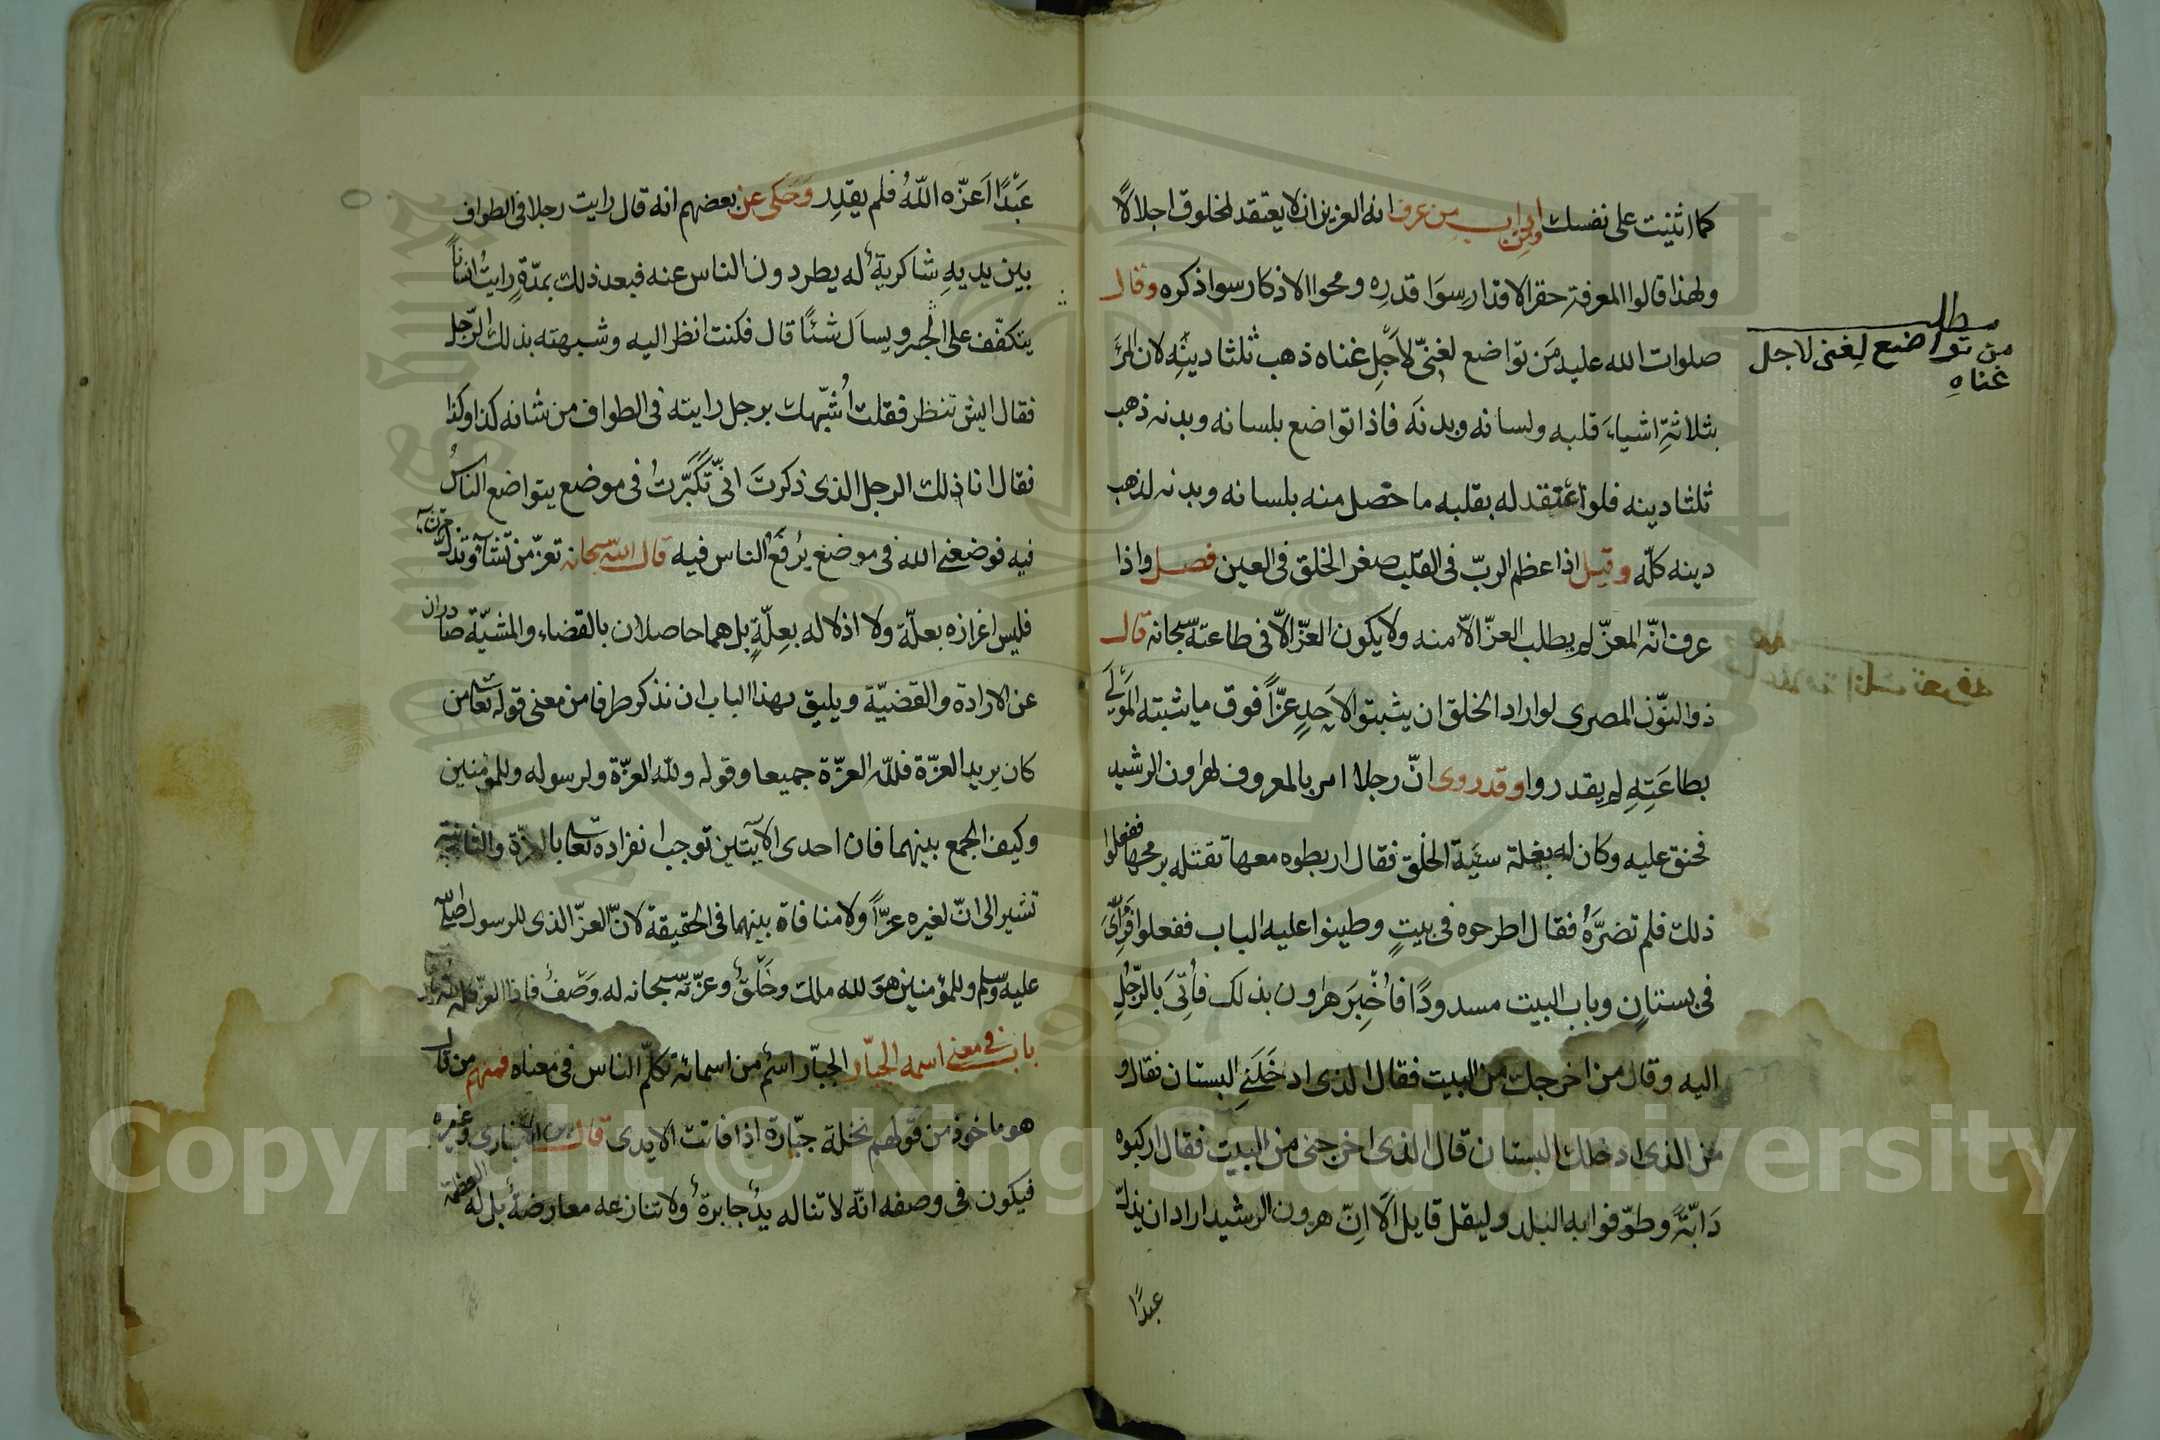 كما اثنيت على نفسك ومن اداب من عرف انه العزيز ان لا يعتقد لمخلوق اجلالاً
ولهذا قالوا المعرفة حقر الاقدار سوا قدره ومحوا الاذكار سوا ذكره وقال
صلوات الله عليه من تواضع لغنيّ لاجل غناه ذهب ثلثا دينه لان المرَ
بثلاثة اشياء قلبه ولسانه وبدنه فاذا تواضع بلسانه وبدنه ذهب
ثلثا دينه فلو اعتقد له بقلبه ما حصل منه بلسانه وبدنه لذهب
دينه كلّه وقيل اذا عظم الربّ في القلب صغر الخلق في العين فصل واذا
عرف انّه المعزّ لم يطلب العزّ الاّ منه ولا يكون العزّ الاّ في طاعته سبحانه قال
ذو النّون المصرى لو اراد الخلق ان يثبتوا لاحدٍ عزّاً فوق ما يثبته المولى
بطاعته لم يقدروا وقد روى انّ رجلا امر بالمعروف لهارون الرشيد
فحنق عليه وكان له بغلة سيئة الخلق فقال اربطوه معها تقتله برمحها ففعلوا
ذلك فلم تضرّه فقال اطرحوه في بيتٍ وطينوا عليه الباب ففعلوا فرُاىَ
في بستانٍ وباب البيت مسدودًا فاُخبِرَ هارون بذلك فاُتى بالرّجلِ
اليه وقال من اخرجك من البيت فقال الذى ادخلنى البستان فقال و
من الذى ادخلك البستان قال الذى اخرجنى من البيت فقال اركبوه
دَابّةً وطوّفوا به البلد وليقل قايل الَا اِنّ هرون الرشيد اراد ان يذلّ
عبدًا
مطلب
من تواضع لغنى لاجل
غناه
عَبْدًا اَعزّه اللّهُ فلم يقدِر وحكى عن بعضهم انه قال رايت رجلا في الطواف
بين يديهِ شاكريةٌ له يطردون الناس عنه فبعد ذلك بمدّةٍ رايتُ انساناً
يتكفّف على الجسر ويسأل شئًا قال فكنت انظر اليه وشبهته بذلك الرّجل
فقال ايش تنظر فقلت اُشبّهك برجل رايته في الطواف من شانه كذا وكذا
فقال انا ذلك الرجل الذى ذكرتَ انّى تَكبَّرتُ في موضع يتواضع الناسُ
فيه فوضعنى الله في موضع يرفَعُ الناس فيه قال الله سبحانه تعزّ من تشآء وتذلّ من تشآء
فليس اعزازه بعلّة ولا اذلاله بعِلّةٍ بل هما حاصلان بالقضاء والمشيّة صادران
عن الارادة والقضيّة ويليق بهذا الباب ان نذكر طرفا من معنى قوله تعالى من
كان يريد العزّة فللّه العزّة جميعا وقوله ولله العزّة ولرسوله وللمؤمنين
وكيف الجمع بينهما فان احدى الآيتين توجب انفراده تعالى بالعزّة والثانية
تشير الى انّ لغيره عزّاً ولا منافاة بينهما في الحقيقة لانّ العزّ الذى للرسول صلى الله
عليه وسلم وللمؤمنين هو لله ملك وخَلقٌ وعزّته سبحانه له وَصْفٌ فاذا العزّ كله لله
باب في معنى اسمه الجبّار الجبّار اسم من اسمائه تكلّم الناس في معناه فمنهم من قال
هو ماخوذ من قولهم نخلة جبّارة اذا فاتت الايدى قال ابن الانبارى وغيره
فيكون في وصفه انّه لا تناله يدٌ جابرةٌ ولا تنازعه معارضةٌ بل له العظمة